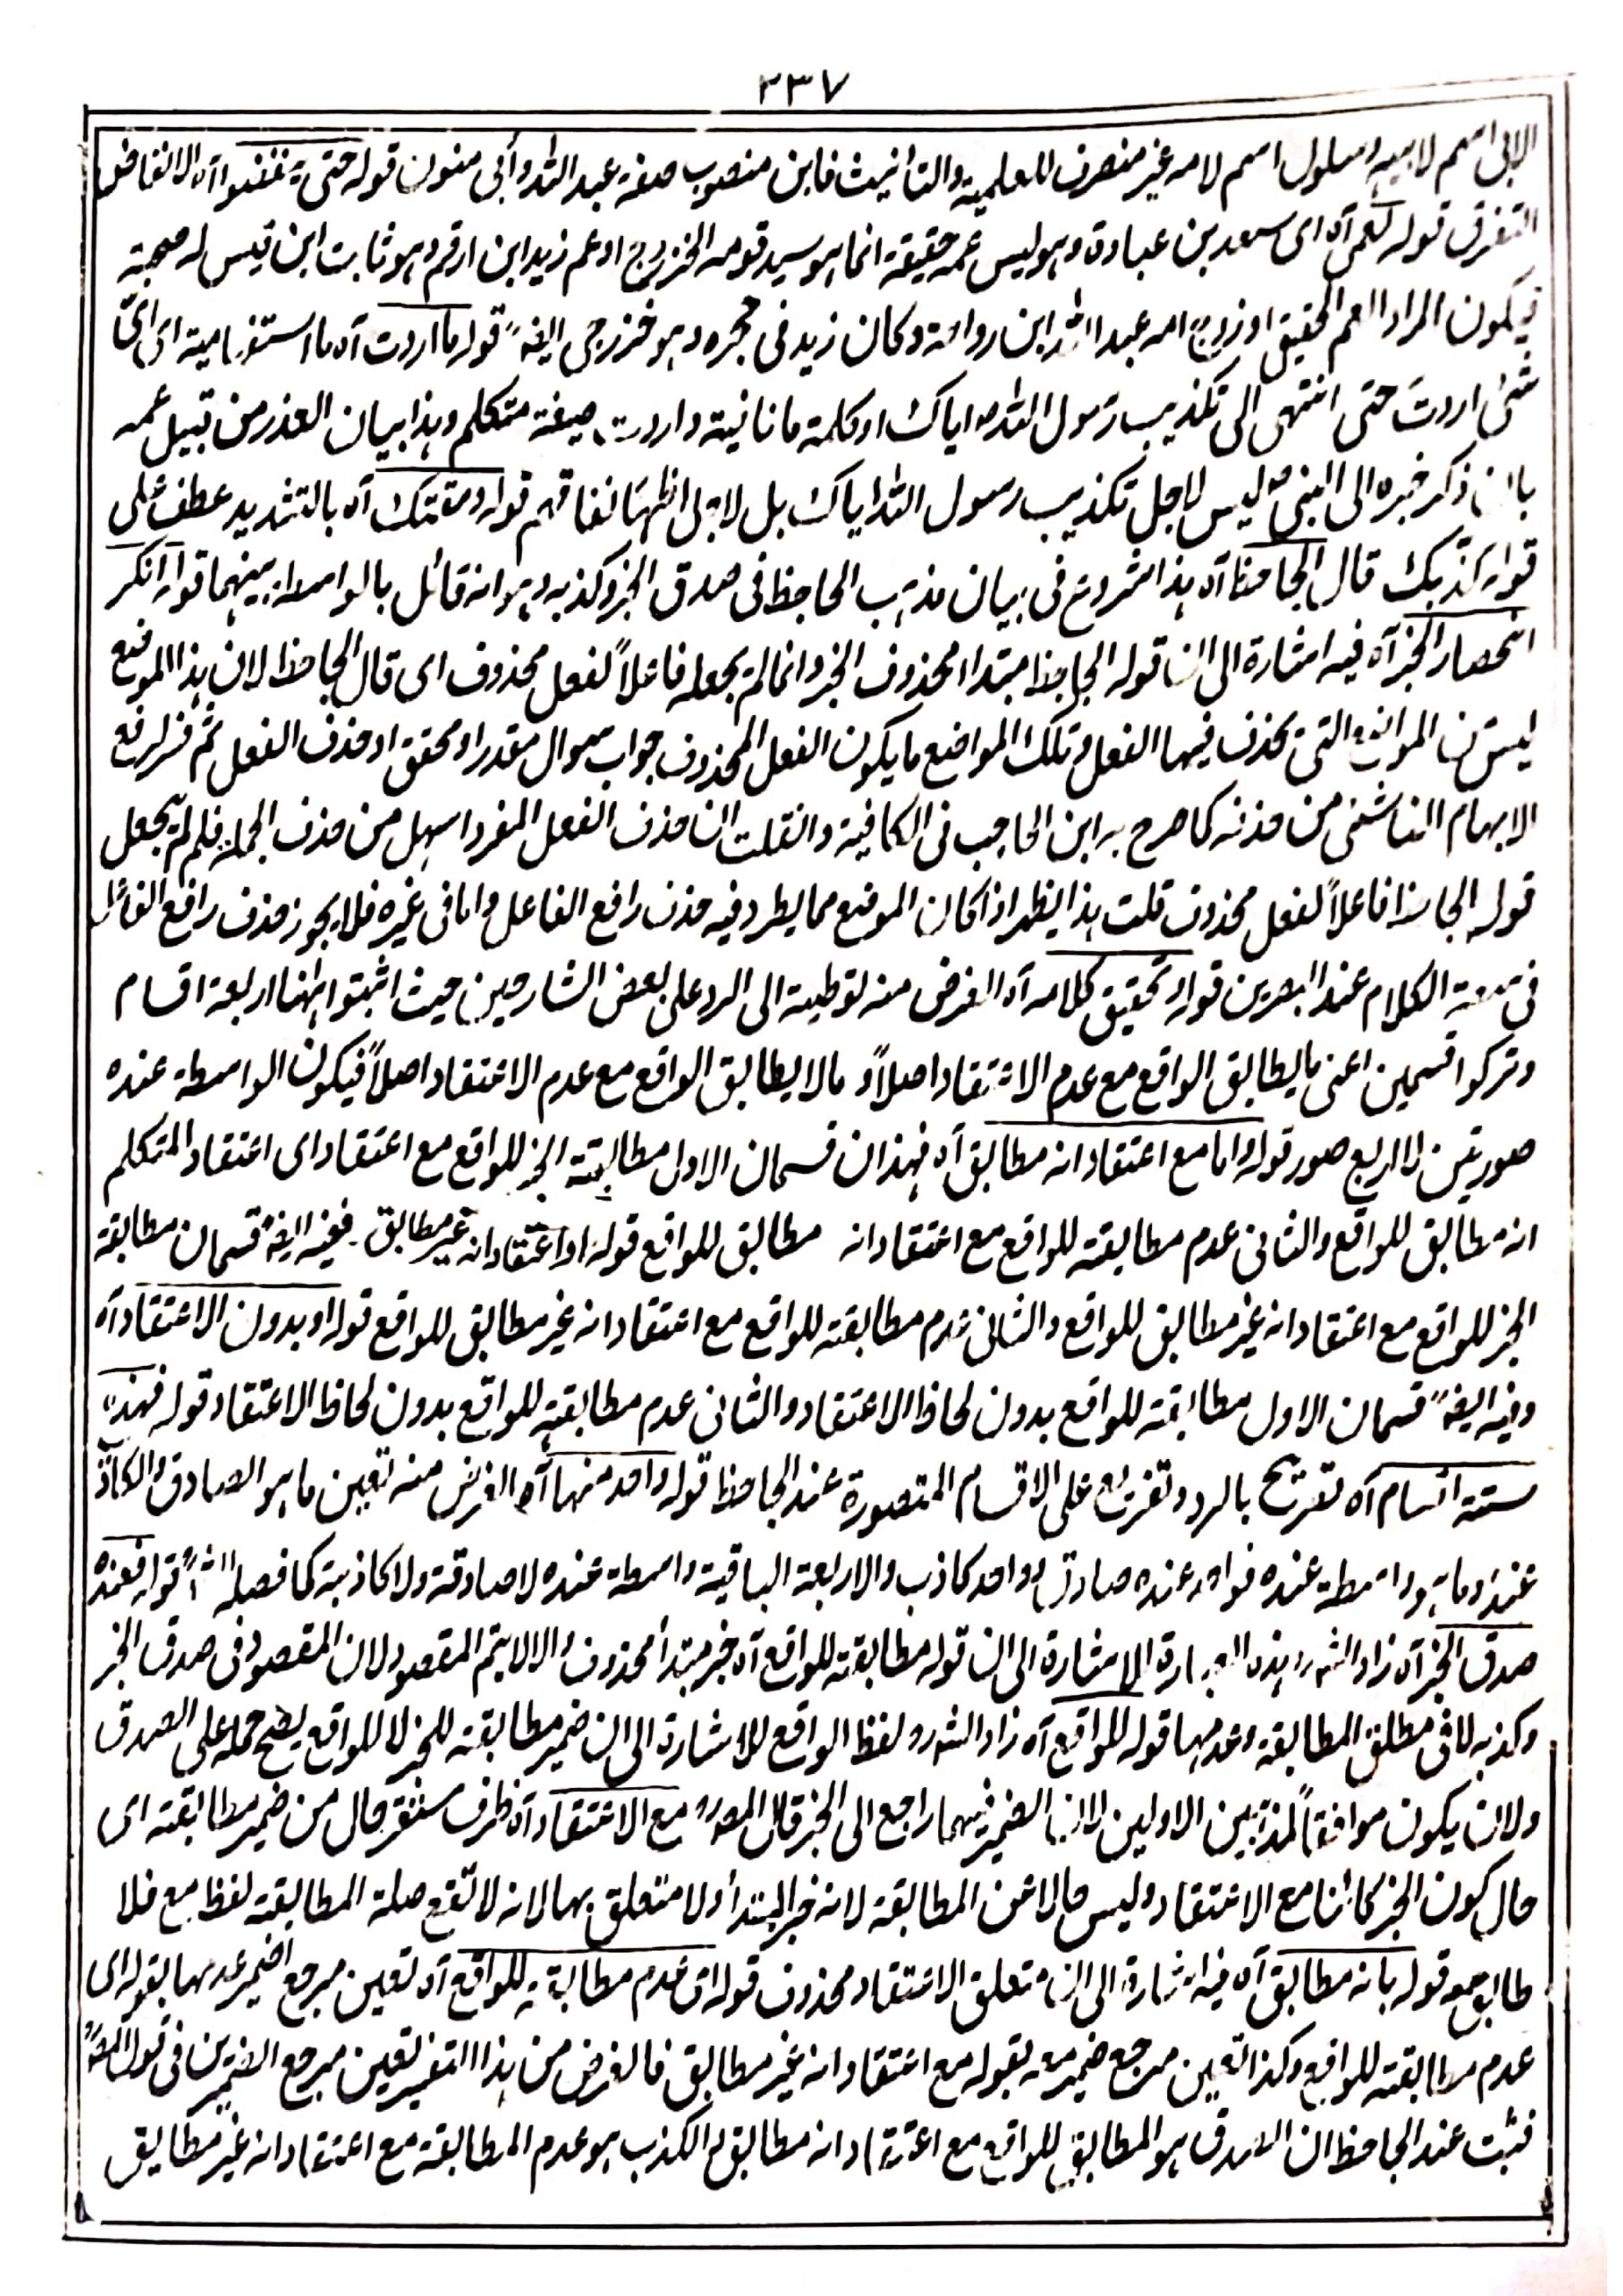 ٢٣٧
الابی اسم لابیه وسلول اسم لامه غیر منصرف للعلمیة والتأنیث فابن منصوب صفة عبد الله وأبی منون قوله حتی ینفضوا آه الانفاض
التفرق قوله لعمی آه ای سعد بن عبادة وهو لیس عمه حقیقة انما هو سید قومه الخزرج او عم زید ابن ارقم وهو ثابت ابن قیس له صحبة
فیکون المراد العم الحقیقی او زوج امه عبد الله ابن رواحة وکان زید فی حجره وهو خزرجی ایضاً قوله ما اردت آه ما استفهامیة ای ای
شئ اردت حتی انتهی الی تکذیب رسول الله ﷺ ایاک او کلمة ما نافیة و اردت صیغة متکلم وهذا بیان العذر من قبیل عمه
بان ذکر خبره الی النبی ﷺ لیس لاجل تکذیب رسول الله ایاک بل لاجل اظهار نفاقهم قوله ومقتک آه بالتشدید عطف علی
قوله کذبک قال الجاحظ آه هذا شروع فی بیان مذهب الجاحظ فی صدق الخبر وکذبه وهو انه قائل بالواسطة بینهما قوله انکر
انحصار الخبر آه فیه اشارة الی ان قوله الجاحظ مبتدا محذوف الخبر وانما لم یجعله فاعلاً لفعل محذوف ای قال الجاحظ لان هذا الموضع
لیس من المواضع التی یحذف فیها الفعل وتلک المواضع ما یکون الفعل المحذوف جواب سوال مقدر او محقق او حذف الفعل ثم فسر لرفع
الابهام الناشئ من حذفه کما صرح به ابن الحاجب فی الکافیة وان قلت ان حذف الفعل المفرد اسهل من حذف الجملة فلم لم یجعل
قوله الجاحظ فاعلاً لفعل محذوف قلت هذا یظهر اذا کان الموضع مما یطرد فیه حذف رافع الفاعل واما فی غیره فلا یجوز حذف رافع الفاعل
فی سعة الکلام عند البصرین قوله وتحقیق کلامه آه الغرض منه توطیة الی الرد علی بعض الشارحین حیث اثبتوا ههنا اربعة اقسام
وترکوا قسمین اعنی ما یطابق الواقع مع عدم الاعتقاد اصلاً و ما لا یطابق الواقع مع عدم الاعتقاد اصلاً فیکون الواسطة عنده
صورتین لا اربع صور قوله واما مع اعتقاد انه مطابق آه فهذان قسمان الاول مطابقة الخبر للواقع مع اعتقاد ای اعتقاد المتکلم
انه مطابق للواقع والثانی عدم مطابقته للواقع مع اعتقاد انه مطابق للواقع قوله او اعتقاد انه غیر مطابق ففیه ایضاً قسمان مطابقة
الخبر للواقع مع اعتقاد انه غیر مطابق للواقع والثانی عدم مطابقته للواقع مع اعتقاد انه غیر مطابق للواقع قوله او بدون الاعتقاد آه
وفیه ایضاً قسمان الاول مطابقته للواقع بدون لحاظ الاعتقاد والثانی عدم مطابقته للواقع بدون لحاظ الاعتقاد قوله فهذه
ستة اقسام آه تصریح بالرد وتفریع علی الاقسام المتصورة عند الجاحظ قوله واحد منها آه الغرض منه تعیین ما هو الصادق والکاذب
عنده وما هو واسطة عنده فواحد عنده صادق وواحد کاذب والاربعة الباقیة واسطة عنده لا صادقة ولا کاذبة کما فصله قوله فعنده
صدق الخبر آه زاد الشرح هذه العبارة للاشارة الی ان قوله مطابقته للواقع آه خبر مبتدأ محذوف والا لا یتم المقصود لان المقصود فی صدق الخبر
وکذبه لا فی مطلق المطابقة وعدمها قوله للواقع آه زاد الشرح لفظ الواقع للاشارة الی ان ضمیر مطابقته للخبر لا للواقع لیصح حمله علی الصدق
ولان یکون موافقاً لمذهبین الاولین لان الضمیر فیهما راجع الی الخبر قال المص مع الاعتقاد آه ظرف مستقر حال من ضمیر مطابقته ای
حال کون الخبر کائنا مع الاعتقاد ولیس حالا عن المطابقة لانه خبر المبتدأ ولا متعلق بها لانه لا تقع صلة المطابقة لفظ مع فلا
قوله بانه مطابق آه فیه اشارة الی ان متعلق الاعتقاد محذوف قوله ای عدم مطابقته للواقع آه تعیین مرجع ضمیر عدمها بقوله ای
عدم مطابقته للواقع وکذا تعیین مرجع ضمیر معه بقوله مع اعتقاد انه غیر مطابق فالغرض من هذا التفسیر تعیین مرجع الضمیرین فی قول المص
فثبت عند الجاحظ ان الصدق هو المطابق للواقع مع اعتقاد انه مطابق والکذب هو عدم المطابقة مع اعتقاد انه غیر مطابق